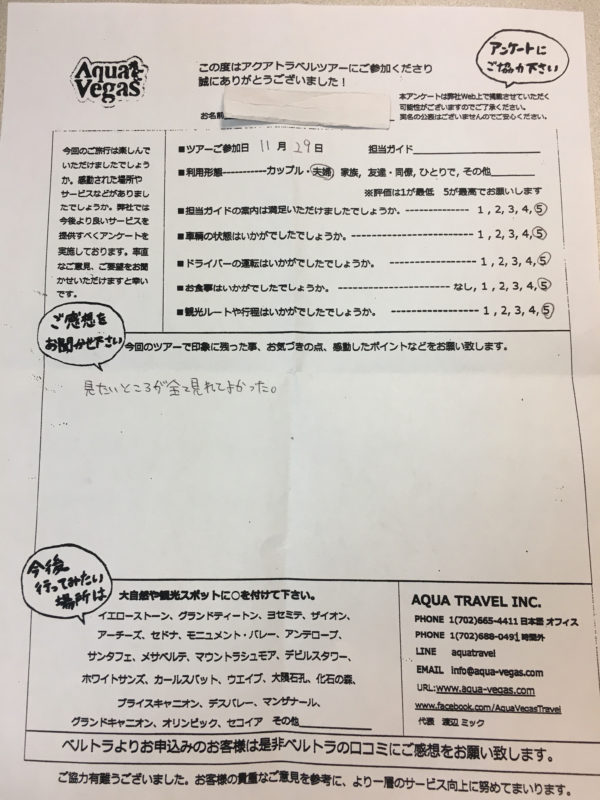 Aqua
Vegas
この度はアクアトラベルツアーにご参加くださり
誠にありがとうございました！
アンケートに
ご協力下さい
本アンケートは弊社Web上で掲載させていただく
可能性がございますのでご了承ください。
実名の公表はございませんのでご安心ください。
お名前
今回のご旅行は楽しんで
いただけましたでしょう
か。感動された場所や
サービスなどがありまし
たでしょうか。弊社では
今後より良いサービスを
提供すべくアンケートを
実施しております。率直
なご意見、ご要望をお聞
かせいただけますと幸い
です。
■ツアーご参加日 11月29日 担当ガイド
■利用形態-----------カップル・夫婦, 家族, 友達・同僚, ひとりで, その他
※評価は1が最低 5が最高でお願いします
■担当ガイドの案内は満足いただけましたでしょうか。---------------- 1 , 2, 3, 4, 5
■車輌の状態はいかがでしたでしょうか。------------------------- 1 , 2, 3, 4, 5
■ドライバーの運転はいかがでしたでしょうか。 ------------------- 1 , 2, 3, 4, 5
■お食事はいかがでしたでしょうか。 ----------------------- なし, 1, 2, 3, 4, 5
■観光ルートや行程はいかがでしたでしょうか。------------------- 1 , 2, 3, 4, 5
ご感想を
お聞かせ下さい
今回のツアーで印象に残った事、お気づきの点、感動したポイントなどをお願い致します。
見たいところが全て見れてよかった。
今後
行ってみたい
場所は
大自然や観光スポットに○を付けて下さい。
イエローストーン、グランドティートン、ヨセミテ、ザイオン、
アーチーズ、セドナ、モニュメント・バレー、アンテロープ、
サンタフェ、メサベルデ、マウントラシュモア、デビルスタワー、
ホワイトサンズ、カールスバット、ウエイブ、大隕石孔、化石の森、
ブライスキャニオン、デスバレー、マンザナール、
グランドキャニオン、オリンピック、セコイア その他
AQUA TRAVEL INC.
PHONE 1(702)665-4411 日本語 オフィス
PHONE 1(702)688-0491 時間外
LINE aquatravel
EMAIL info@aqua-vegas.com
URL:www.aqua-vegas.com
www.facebook.com/AquaVegasTravel
代表 渡辺 ミック
ベルトラよりお申込みのお客様は是非ベルトラの口コミにご感想をお願い致します。
ご協力有難うございました。お客様の貴重なご意見を参考に、より一層のサービス向上に努めてまいります。